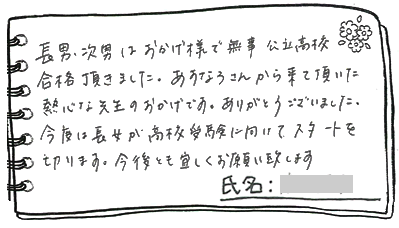 長男、次男はおかげ様で無事公立高校
合格頂きました。あすなろさんから来て頂いた
熱心な先生のおかげです。ありがとうございました。
今度は長女が高校受験に向けてスタートを
切ります。今後とも宜しくお願い致します
氏名: